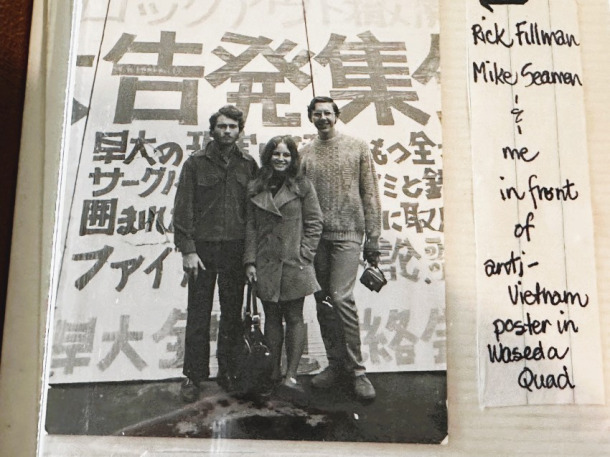 ロックアウト
告発集
早大の もつ全
サークル ミと
囲まれ に取
ファイ
早大 絡
Rick Fillman
Mike Seamon
&
me
in front
of
anti-
Vietnam
poster in
Waseda
Quad